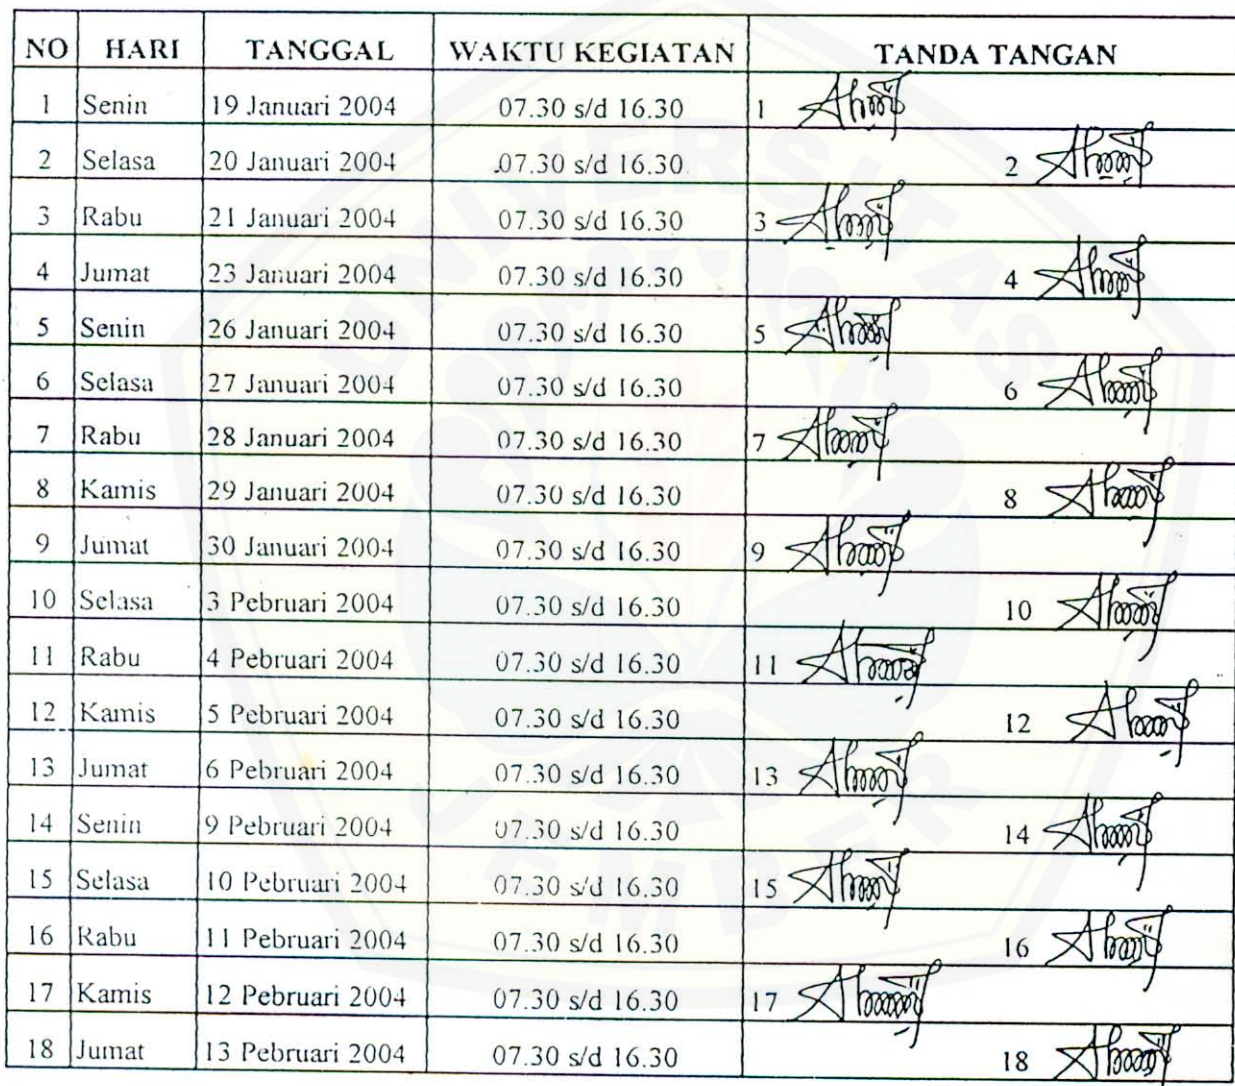 NO HARI TANGGAL WAKTU KEGIATAN TANDA TANGAN
1 Senin 19 Januari 2004 07.30 s/d 16.30 1
2 Selasa 20 Januari 2004 07.30 s/d 16.30 2
3 Rabu 21 Januari 2004 07.30 s/d 16.30 3
4 Jumat 23 Januari 2004 07.30 s/d 16.30 4
5 Senin 26 Januari 2004 07.30 s/d 16.30 5
6 Selasa 27 Januari 2004 07.30 s/d 16.30 6
7 Rabu 28 Januari 2004 07.30 s/d 16.30 7
8 Kamis 29 Januari 2004 07.30 s/d 16.30 8
9 Jumat 30 Januari 2004 07.30 s/d 16.30 9
10 Selasa 3 Pebruari 2004 07.30 s/d 16.30 10
11 Rabu 4 Pebruari 2004 07.30 s/d 16.30 11
12 Kamis 5 Pebruari 2004 07.30 s/d 16.30 12
13 Jumat 6 Pebruari 2004 07.30 s/d 16.30 13
14 Senin 9 Pebruari 2004 07.30 s/d 16.30 14
15 Selasa 10 Pebruari 2004 07.30 s/d 16.30 15
16 Rabu 11 Pebruari 2004 07.30 s/d 16.30 16
17 Kamis 12 Pebruari 2004 07.30 s/d 16.30 17
18 Jumat 13 Pebruari 2004 07.30 s/d 16.30 18
UNIVERSITAS
JEMBER